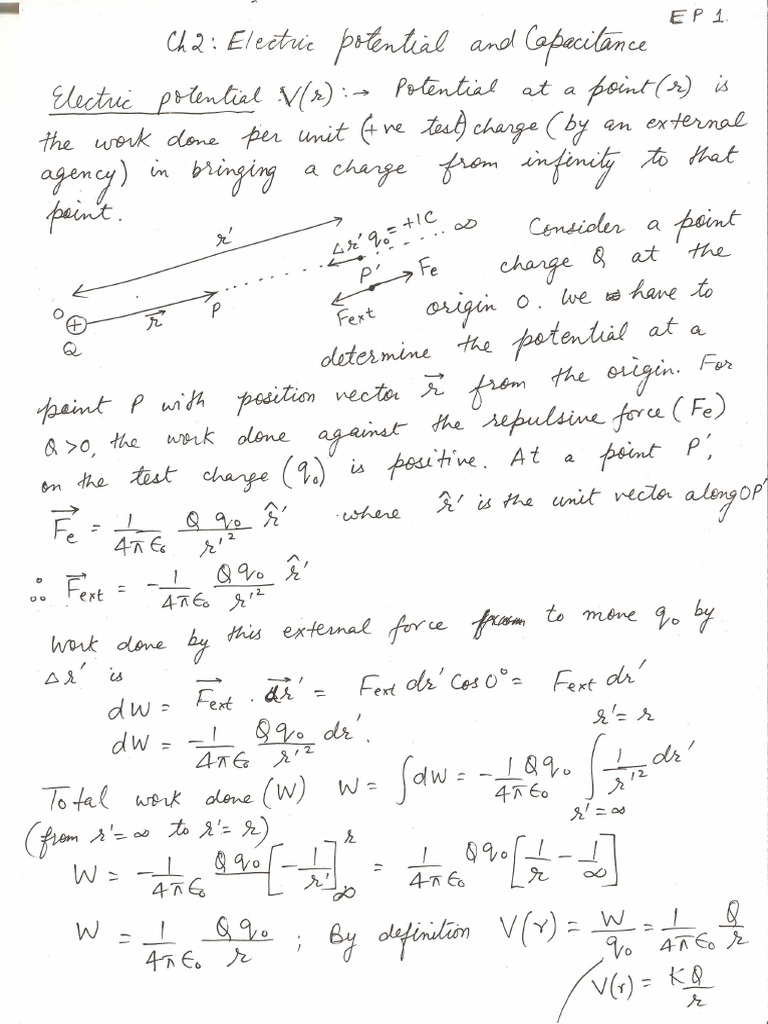 EP 1.
Ch2: Electric potential and Capacitance
Electric potential V(r) :→ Potential at a point (r) is
the work done per unit (+ve test) charge (by an external
agency) in bringing a charge from infinity to that
point.
r'
Δr' q₀ = +1C ∞
P' Fe
Fext
O ⊕ r⃗ P
Q
Consider a point
charge Q at the
origin O. We have to
determine the potential at a
point P with position vector r⃗ from the origin. For
Q >0, the work done against the repulsive force (Fe)
on the test charge (q₀) is positive. At a point P',
F⃗e = 1/4πϵ₀ Q q₀/r'² r̂' where r̂' is the unit vector along OP'
∴ F⃗ext = -1/4πϵ₀ Q q₀/r'² r̂'
Work done by this external force to move q₀ by
Δr' is
dW = F⃗ext . d⃗r' = Fext dr' Cos 0° = Fext dr'
dW = -1/4πϵ₀ Q q₀/r'² dr'.
Total work done (W) W = ∫dW = -1/4πϵ₀ Q q₀ ∫_{r'=∞}^{r'=r} 1/r'² dr'
(from r'=∞ to r'=r)
W = -1/4πϵ₀ Q q₀ [-1/r']_∞^r = 1/4πϵ₀ Q q₀ [1/r - 1/∞]
W = 1/4πϵ₀ Q q₀/r ; By definition V(r) = W/q₀ = 1/4πϵ₀ Q/r
V(r) = KQ/r